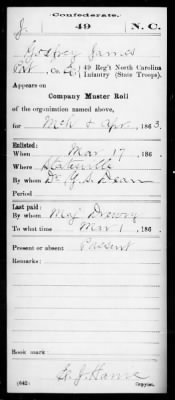 Confederate.
J 49 N. C.
Godfrey James
Pvt, Co. 49 Reg't North Carolina
Infantry (State Troops).
Appears on
Company Muster Roll
of the organization named above,
for Mch & Apr, 1863.
Enlisted:
When Mar 17, 186
Where Statesville
By whom Dean
Period
Last paid:
By whom Maj Drewry
To what time Mar 1, 186
Present or absent Present
Remarks:
Book mark:
(642) Copyist.